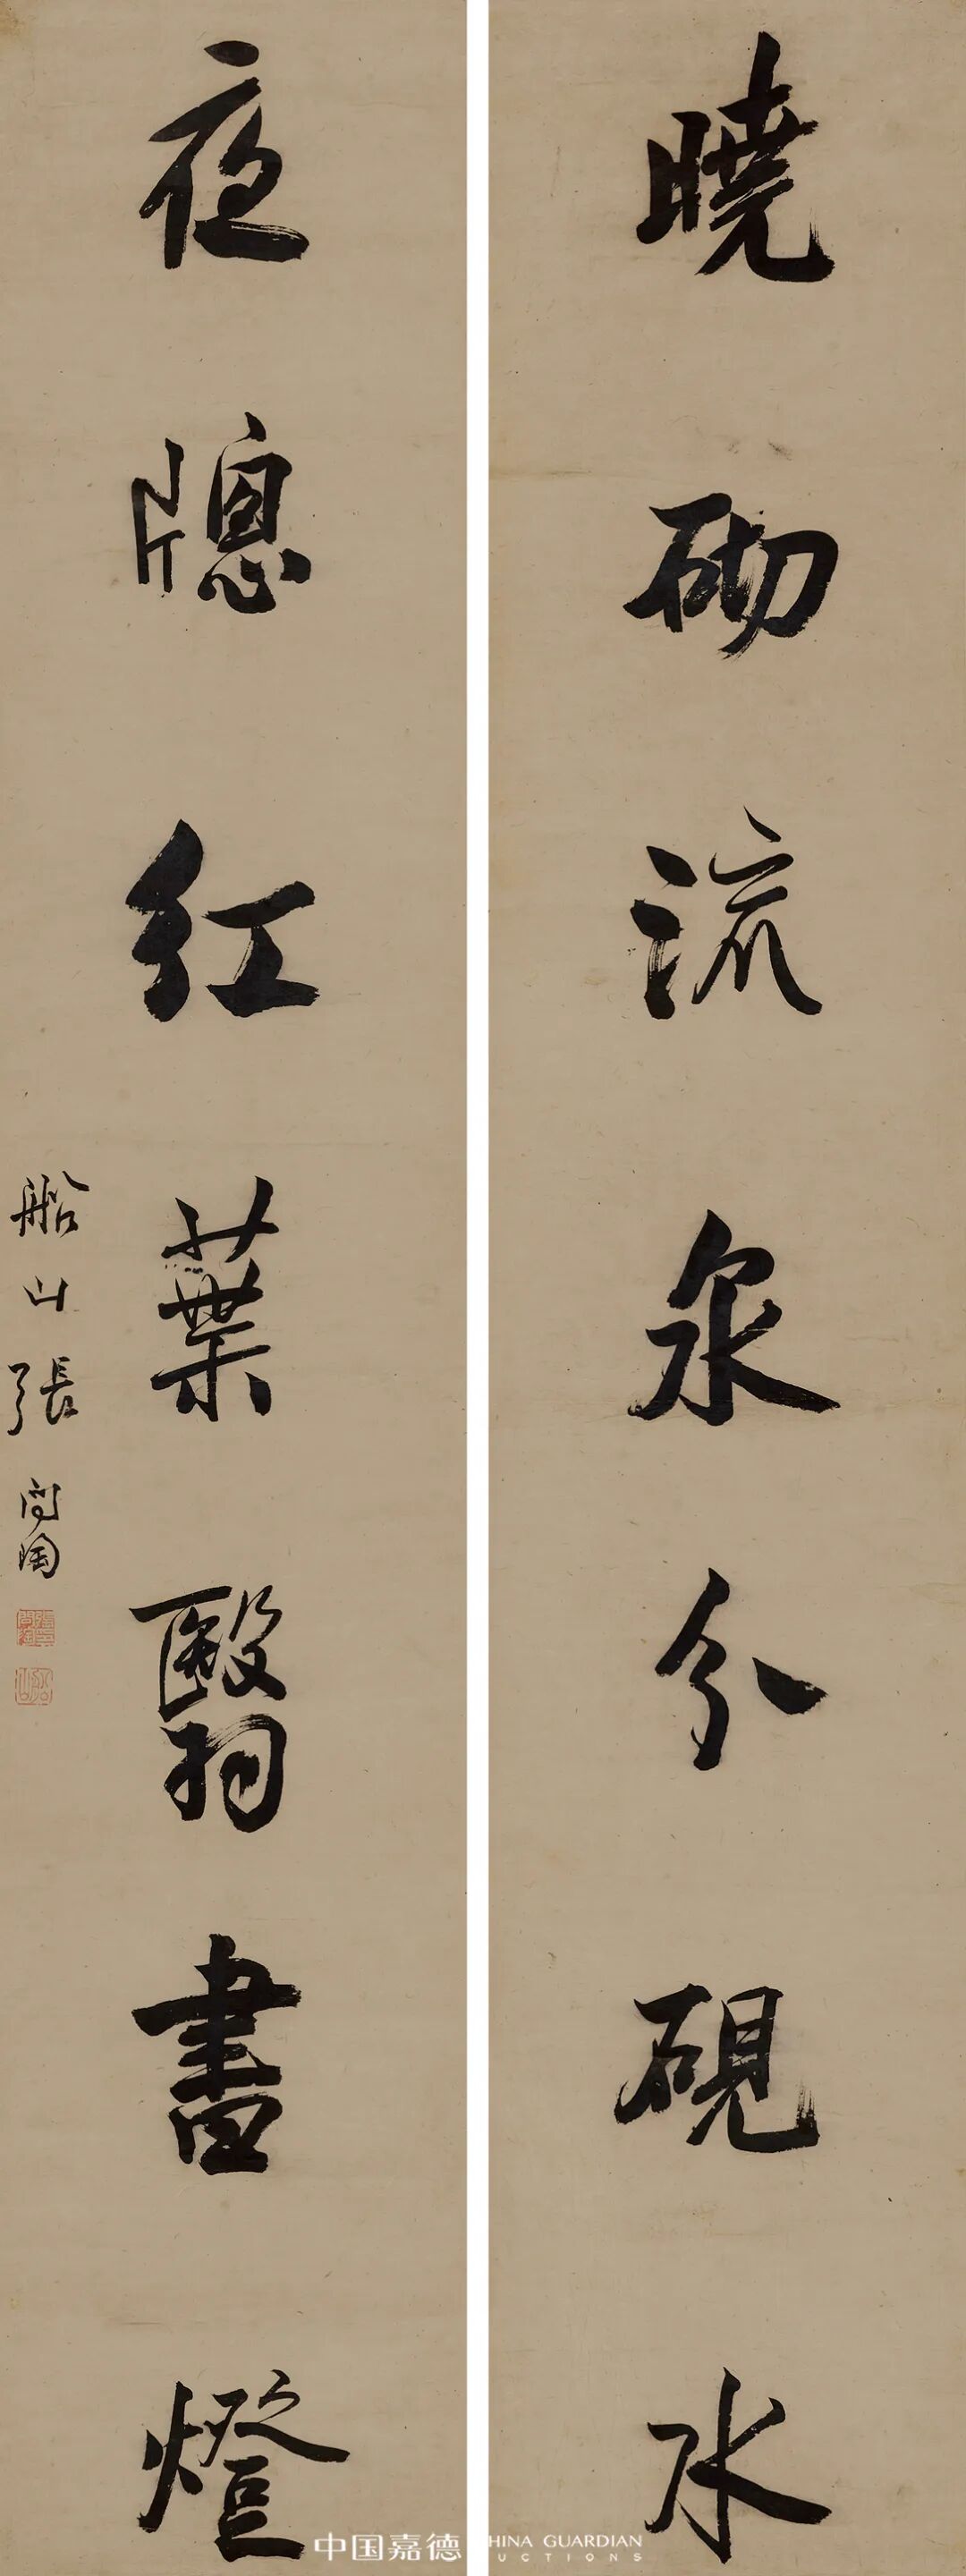 曉砌流泉分硯水
夜牕紅葉翳書燈
船山張問陶
中国嘉德
HINA GUARDIAN
UCTIONS